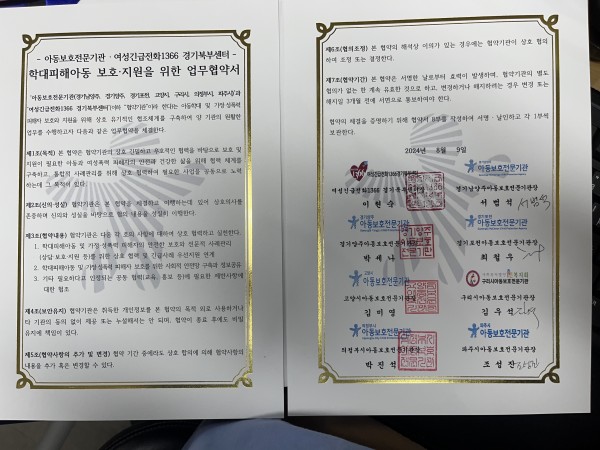 - 아동보호전문기관 · 여성긴급전화1366 경기북부센터 -
학대피해아동 보호·지원을 위한 업무협약서
「아동보호전문기관(경기남양주, 경기양주, 경기포천, 고양시, 구리시, 의정부시, 파주시)과
여성긴급전화1366 경기북부센터」(이하 "협약기관"이라 한다)는 아동학대 및 가정·성폭력
피해아 보호와 지원을 위해 상호 유기적인 협조체계를 구축하며 양 기관의 원활한
업무를 수행하고자 다음과 같은 업무협약을 체결한다.
제1조(목적) 본 협약은 협약기관의 상호 긴밀하고 우호적인 협력을 바탕으로 보호 및
지원이 필요한 아동과 여성폭력 피해자의 안전과 건강한 삶을 위해 협력 체계를
구축하고, 통합적 사례관리를 위해 상호 협력하여 필요한 사업을 공동으로 노력
하는데 그 목적이 있다.
제2조(신의·성실) 협약기관은 본 협약을 체결하고 이행하는데 있어 상호의사를
존중하며 신의와 성실을 바탕으로 협의 내용을 성실히 이행한다.
제3조(협약내용) 협약기관은 다음 각 호의 사항에 대하여 상호 협력하고 실천한다.
1. 학대피해아동 및 가정·성폭력 피해자의 안전한 보호와 전문적 사례관리
(상담·보호·지원 등)를 위한 상호 협력 및 긴급사례 우선지원 연계
2. 학대피해아동 및 가정·성폭력 피해자 보호를 위한 사회적 안전망 구축과 정보공유
3. 기타 필요하다고 인정되는 공동 협력(교육, 홍보 등)에 필요한 제반사항에
대한 협조
제4조(보안유지) 협약기관은 취득한 개인정보를 본 협약의 목적 외로 사용하거나
타 기관의 동의 없이 제공 또는 누설해서는 안 되며, 협약이 종료 후에도 비밀
유지에 책임이 있다.
제5조(협약사항의 추가 및 변경) 협약 기간 중에라도 상호 합의에 의해 협약사항의
내용을 추가 혹은 변경할 수 있다.
제6조(협의조정) 본 협약의 해석상 이의가 있는 경우에는 협약기관이 상호 협의
하여 조정 또는 결정한다.
제7조(협약기간) 본 협약은 서명한 날로부터 효력이 발생하며, 협약기관의 별도
협의가 없는 한 계속 유효한 것으로 하고, 변경하거나 해지하려는 경우 변경 또는
해지일 3개월 전에 서면으로 통보하여야 한다.
협약의 체결을 증명하기 위해 협약서 8부를 작성하여 서명·날인하고 각 1부씩
보관한다.
2024년 8월 9일
여성긴급전화1366경기북부센터
아동보호전문기관
여성긴급전화1366 경기북부센터장
경기남양주아동보호전문기관장
이 원 순
서 범 석
경기양주
아동보호전문기관
아동보호전문기관
경기양주아동보호전문기관장
경기포천아동보호전문기관장
박 세 나
최 철 우
고양시
아동보호전문기관
구리시아동보호전문기관
고양시아동보호전문기관장
구리시아동보호전문기관장
김 미 영
김 우 석
의정부시
아동보호전문기관
파주시
아동보호전문기관
의정부시아동보호전문기관장
파주시아동보호전문기관장
박 진 석
조 성 찬